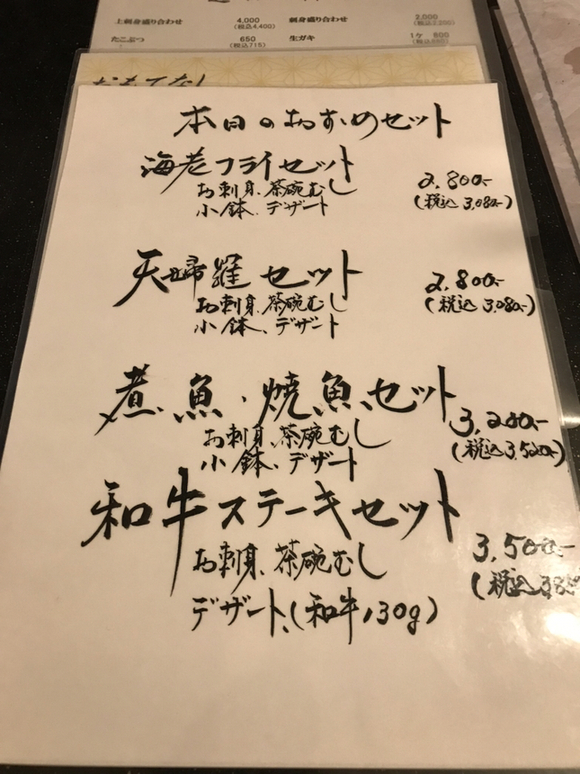 上刺身盛り合わせ 4,000 刺身盛り合わせ 2,000
(税込4,400) (税込2,200)
たこぶつ 650 生ガキ 1ケ 800
(税込715)
おもてなし
本日のおすすめセット
海老フライセット 2,800-
お刺身、茶碗むし (税込 3,080-)
小鉢、デザート
天婦羅セット 2,800-
お刺身、茶碗むし (税込 3,080-)
小鉢、デザート
煮魚・焼魚セット 3,200-
お刺身、茶碗むし (税込 3,520-)
小鉢、デザート
和牛ステーキセット 3,500-
お刺身、茶碗むし (税込
デザート、(和牛130g)